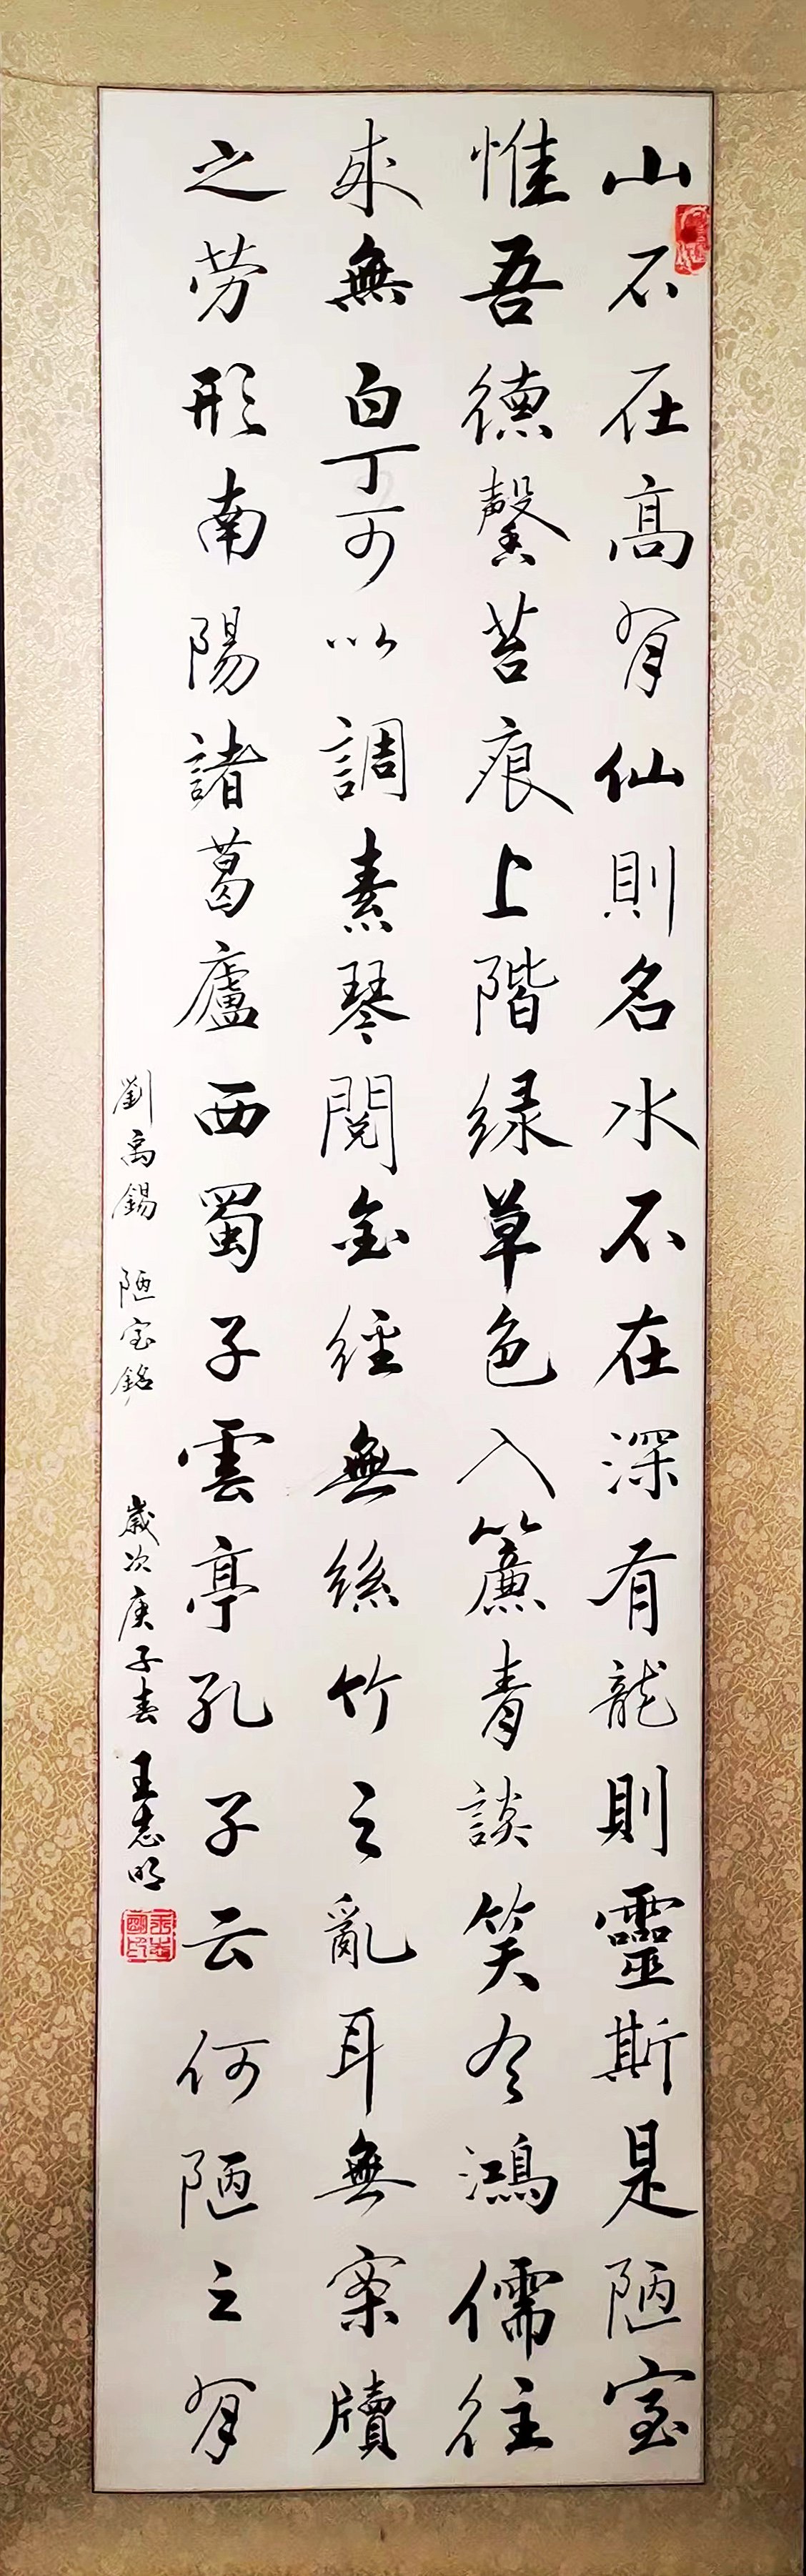 山不在高有仙則名水不在深有龍則靈斯是陋室
惟吾德馨苔痕上階緑草色入簾青談笑有鴻儒往
來無白丁可以調素琴閱金經無絲竹之亂耳無案牘
之劳形南陽諸葛廬西蜀子雲亭孔子云何陋之有
劉禹錫 陋室銘 歲次庚子春 王志明
王志明印